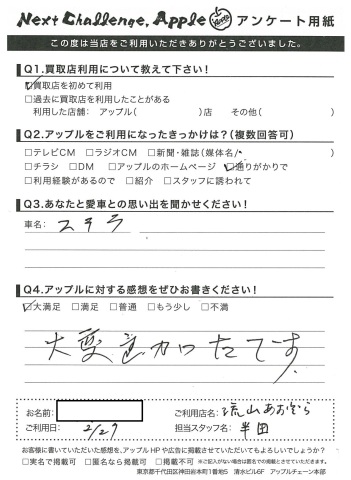 Next Challenge, Apple Apple アンケート用紙
この度は当店をご利用いただきありがとうございました。
Q1.買取店利用について教えて下さい！
☑買取店を初めて利用
□過去に買取店を利用したことがある
利用した店舗： アップル（ ）店 その他（ ）
Q2.アップルをご利用になったきっかけは？（複数回答可）
□テレビCM □ラジオCM □新聞・雑誌（媒体名/ ）
□チラシ □DM □アップルのホームページ ☑通りがかりで
□利用経験があるので □紹介 □スタッフに誘われて
Q3.あなたと愛車との思い出を聞かせください！
車名：ステラ
Q4.アップルに対する感想をぜひお書きください！
☑大満足 □満足 □普通 □もう少し □不満
大変良かったです
お名前：
ご利用店名：流山あおぞら
ご利用日： 2/27
担当スタッフ名：半田
お客様に書いていただいた感想を、アップルHPや広告に掲載させていただいてもよろしいでしょうか？
□実名で掲載可 □匿名なら掲載可 □掲載不可 ※ご記入がない場合は匿名での掲載とさせていただきます。
東京都千代田区神田岩本町1番地5 清水ビル6F アップルチェーン本部